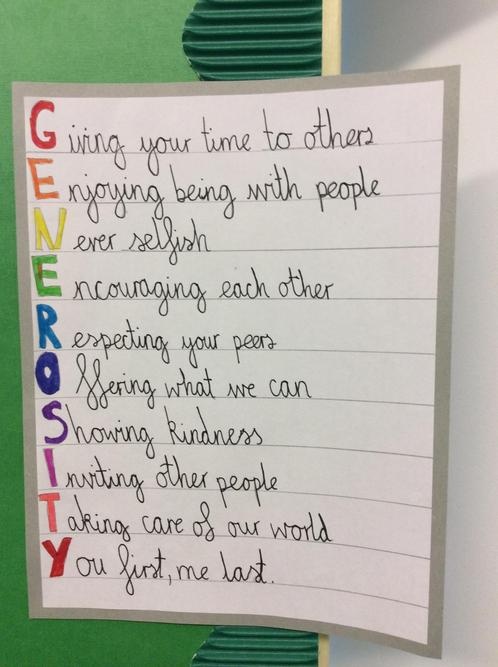 Giving your time to others
Enjoying being with people
Never selfish
Encouraging each other
Respecting your peers
Offering what we can
Showing kindness
Inviting other people
Taking care of our world
You first, me last.